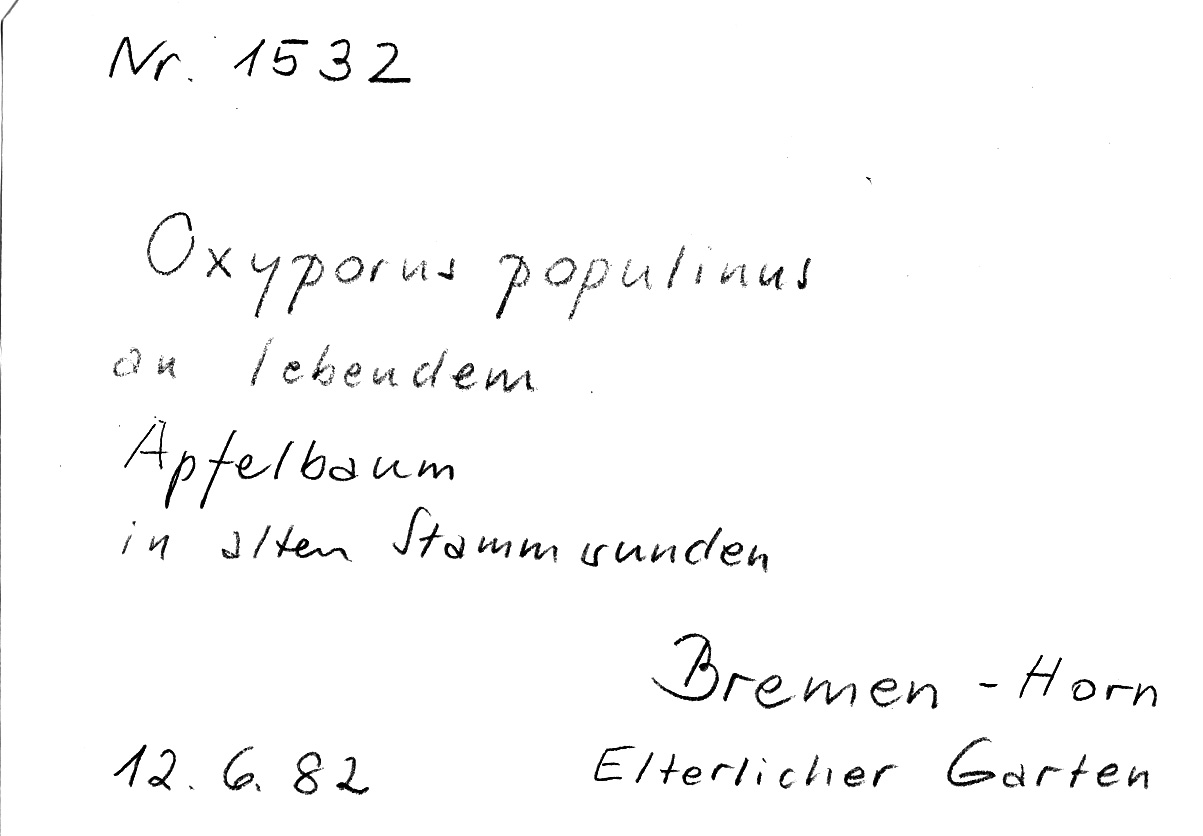 Nr. 1532
Oxyporus populinus
an lebendem
Apfelbaum
in alten Stammwunden
Bremen - Horn
12. 6. 82 Elterlicher Garten